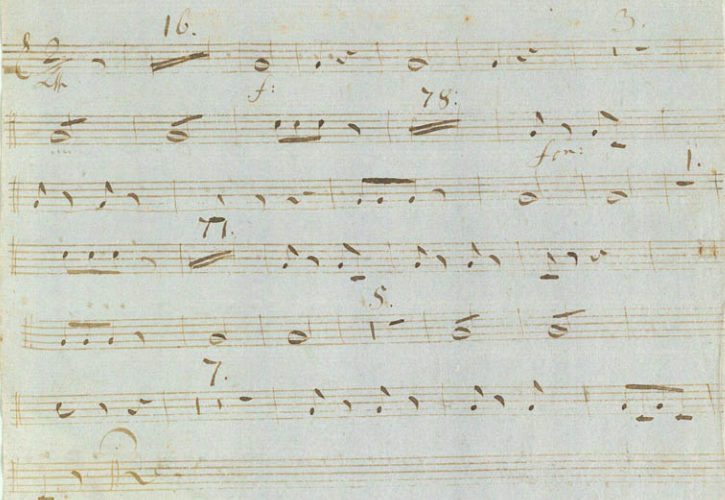 16. 3.
f:
78:
for:
1.
71.
5.
7.